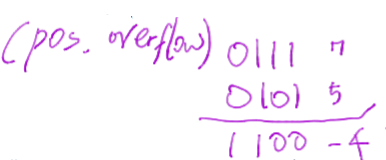 (pos. overflow) 0111 7
0101 5
1100 -4